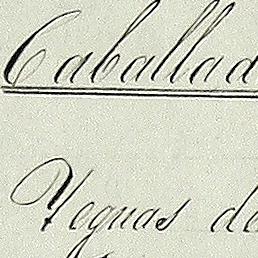 Caballad
Yeguas de